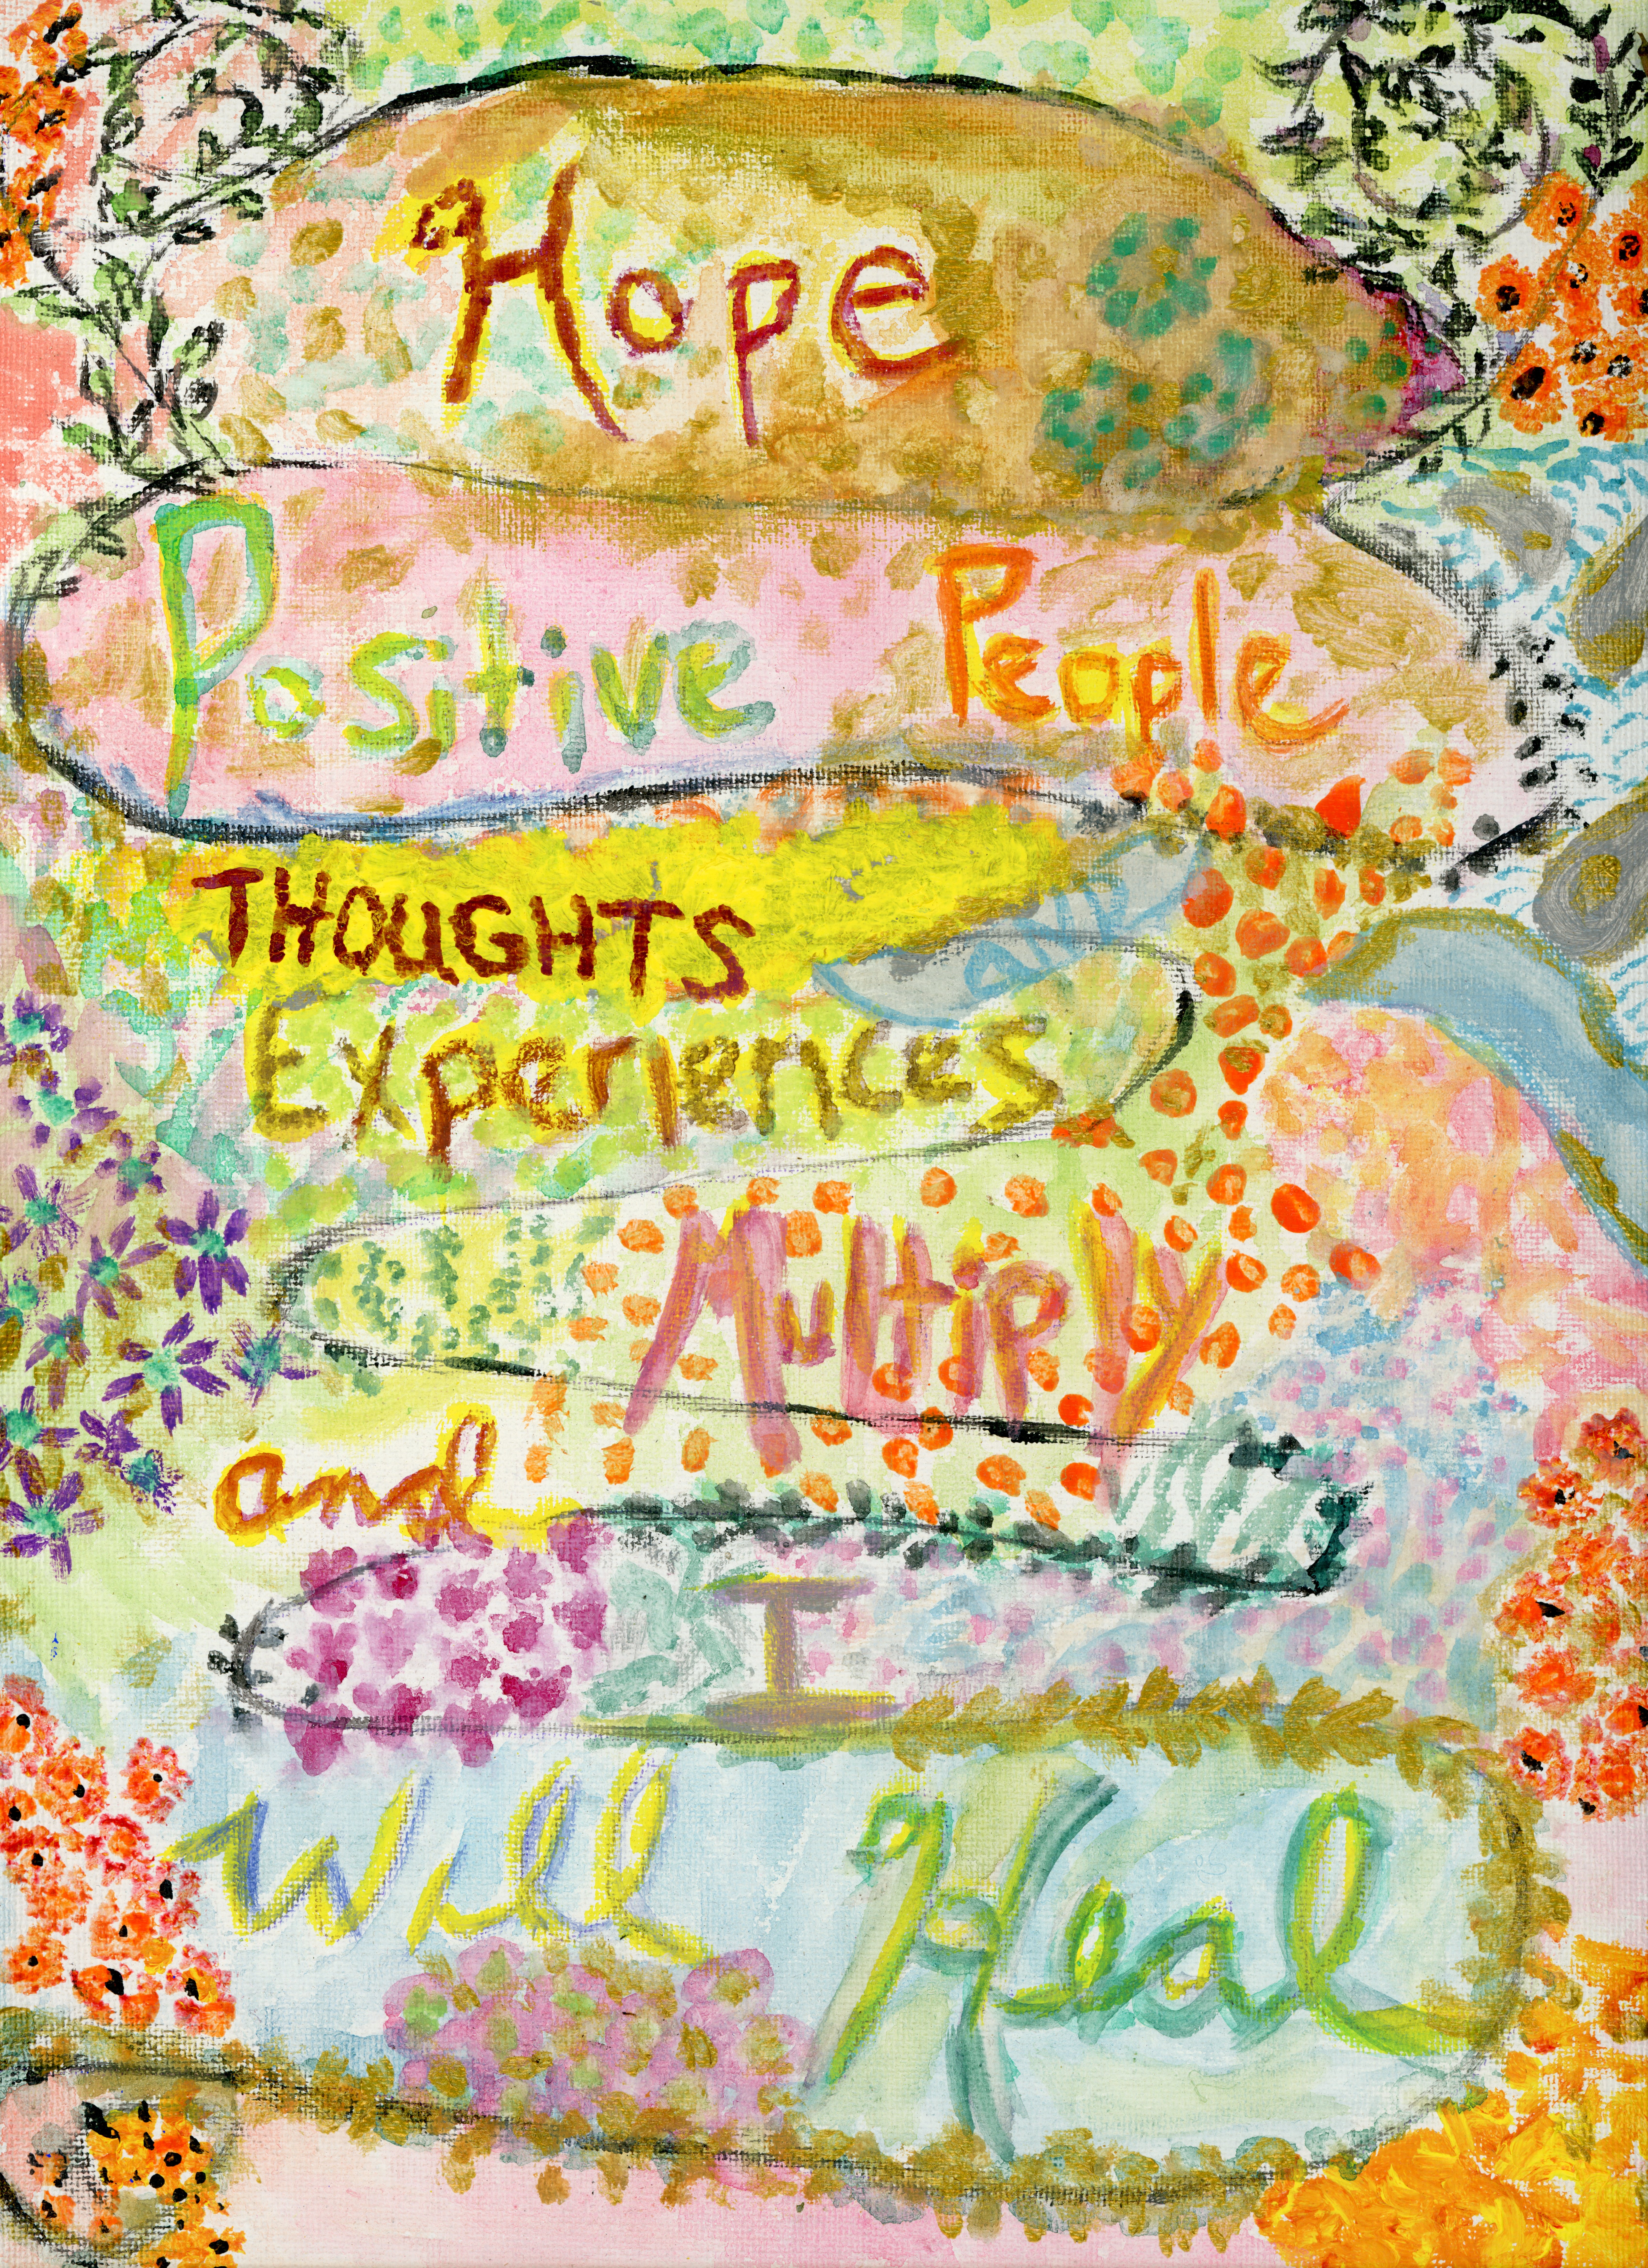 Hope
Positive People
THOUGHTS and
Experiences
Multiply
and
I
Will Heal